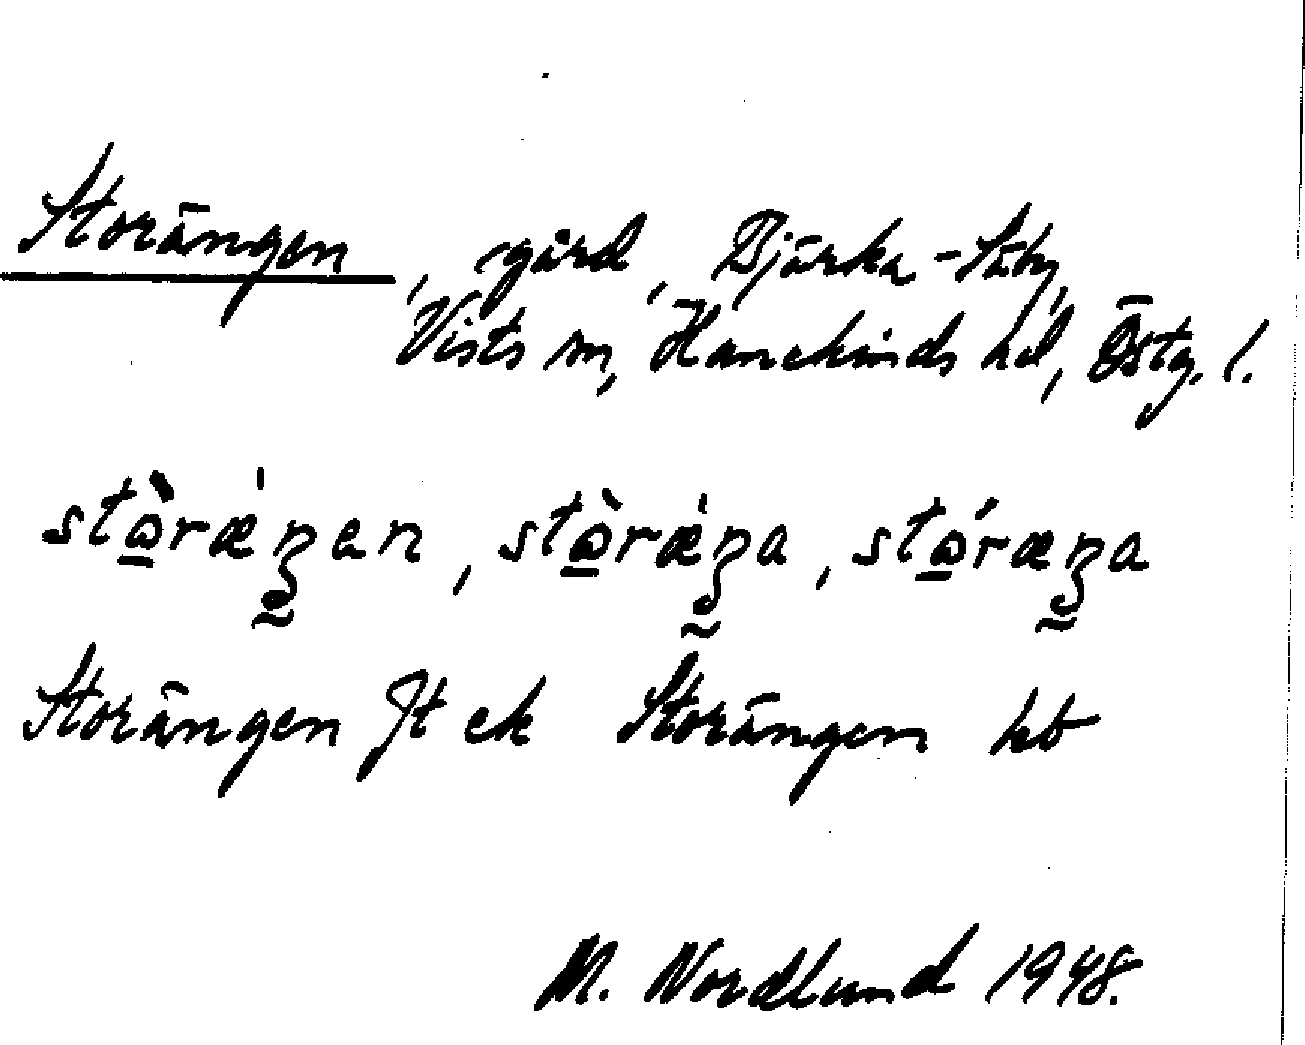 Storängen, gård, Bjärka-Säby,
Vists sn, Hanekinds hd, Östg. l.
stὼ̲ræ̍ŋen, stὼ̲ræ̍ŋa, stώ̲ræŋa
Storängen Jt ek Storängen kb
M. Nordlund 1948.